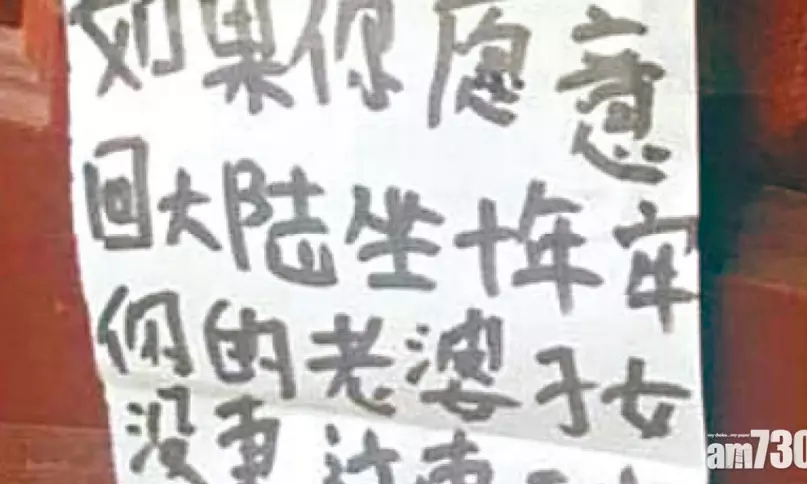 如果你愿意
回大陆坐十年牢
你的老婆子女
没事 这事
am730